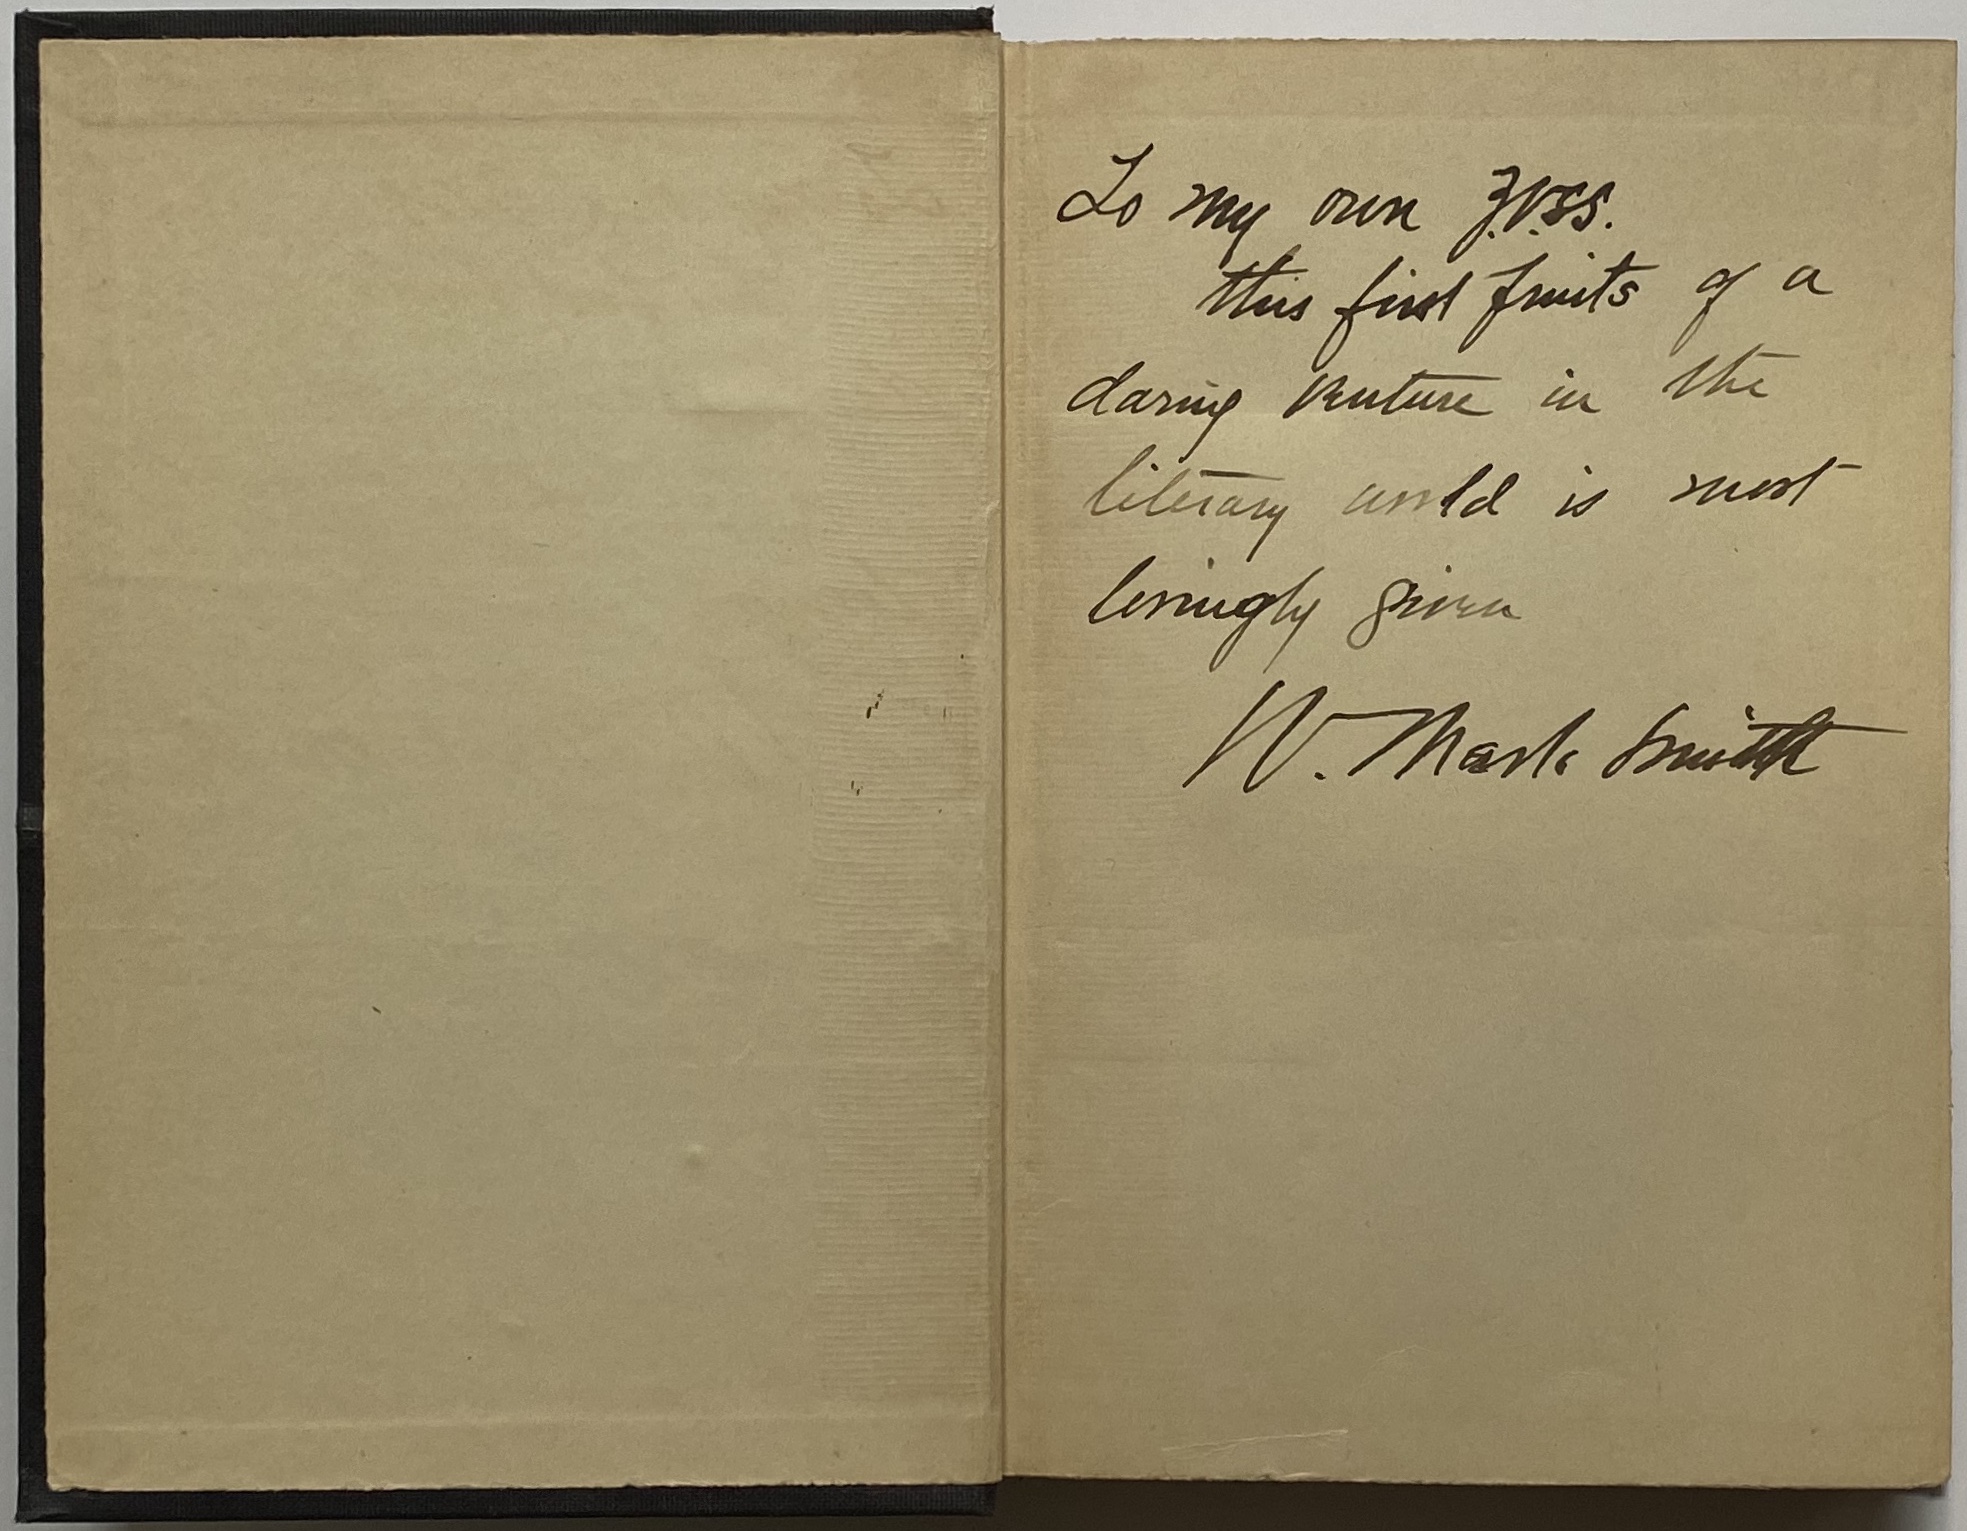 To my own Z.V.S.S.
this first fruits of a
daring venture in the
literary world is most
lovingly given
W. Mark Smith